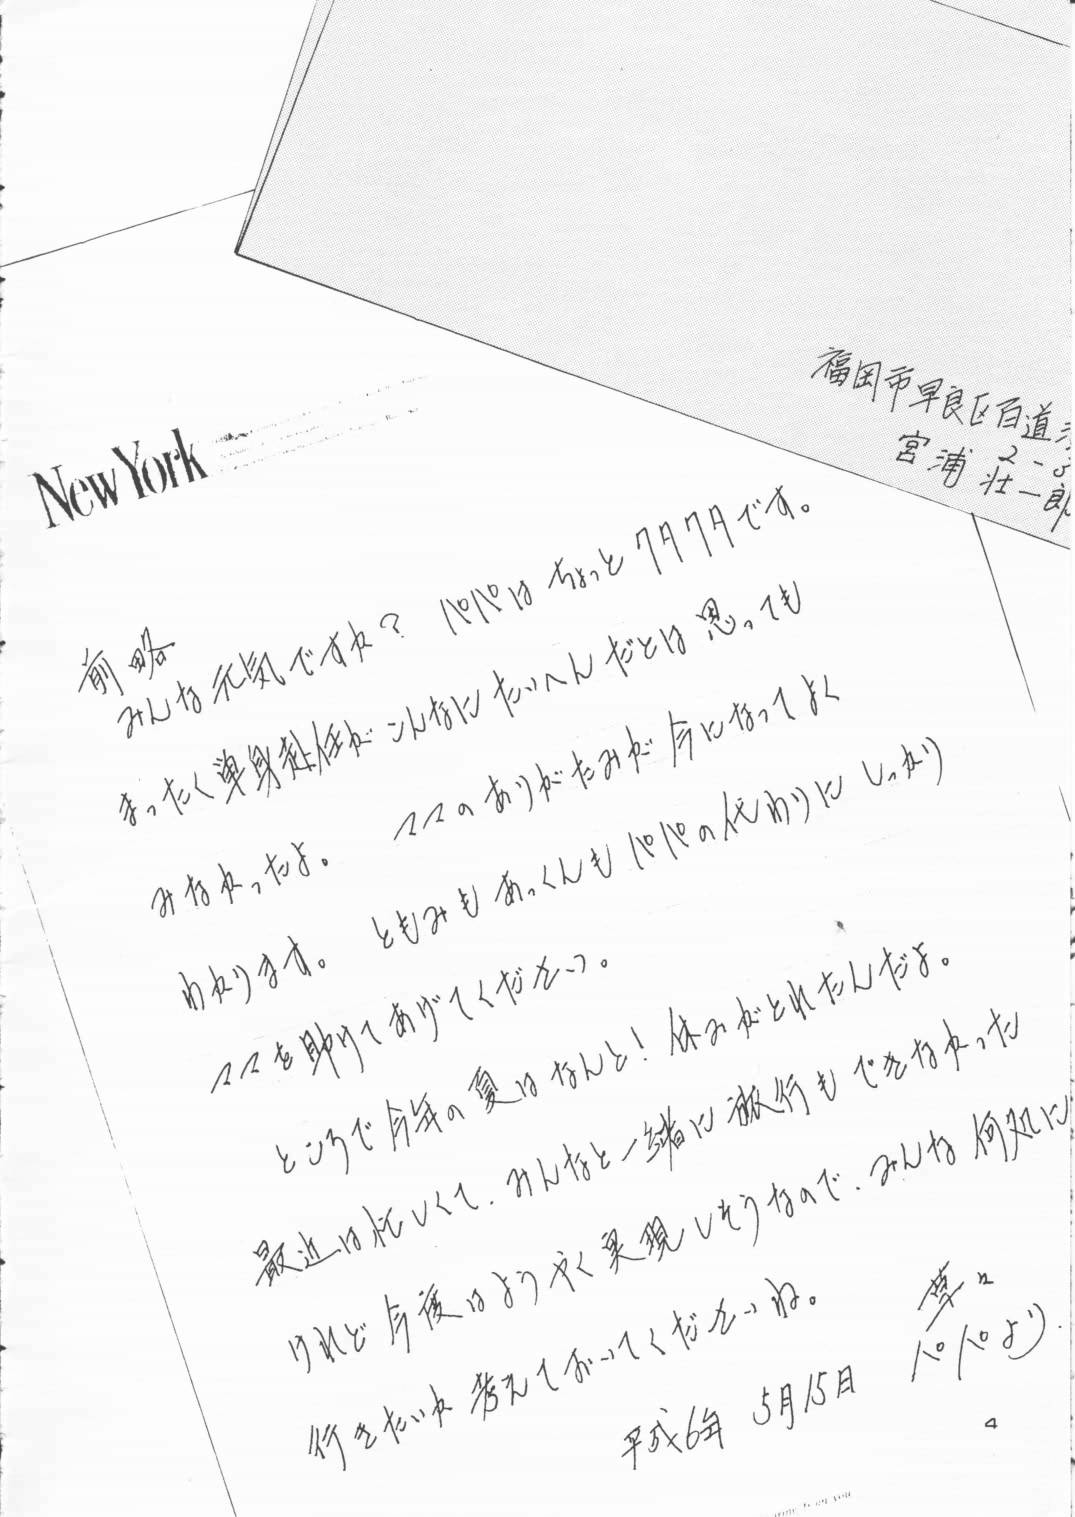 福岡市早良区百道
2-
宮浦 壮一郎
New York
前略
みんな元気ですか? パパはちょっとクタクタです。
まったく単身赴任がこんなにたいへんだとは思っても
みなかったよ。 ママのありがたみが今になってよく
わかります。 ともみもあっくんもパパの代わりにしっかり
ママを助けてあげてください。
ところで今年の夏はなんと!休みがとれたんだよ。
最近は忙しくて、みんなと一緒に旅行もできなかった
けれど今度はようやく実現しそうなので、みんな何処に
行きたいか考えておいてくださいね。
草々
平成6年 5月15日 パパより.
4